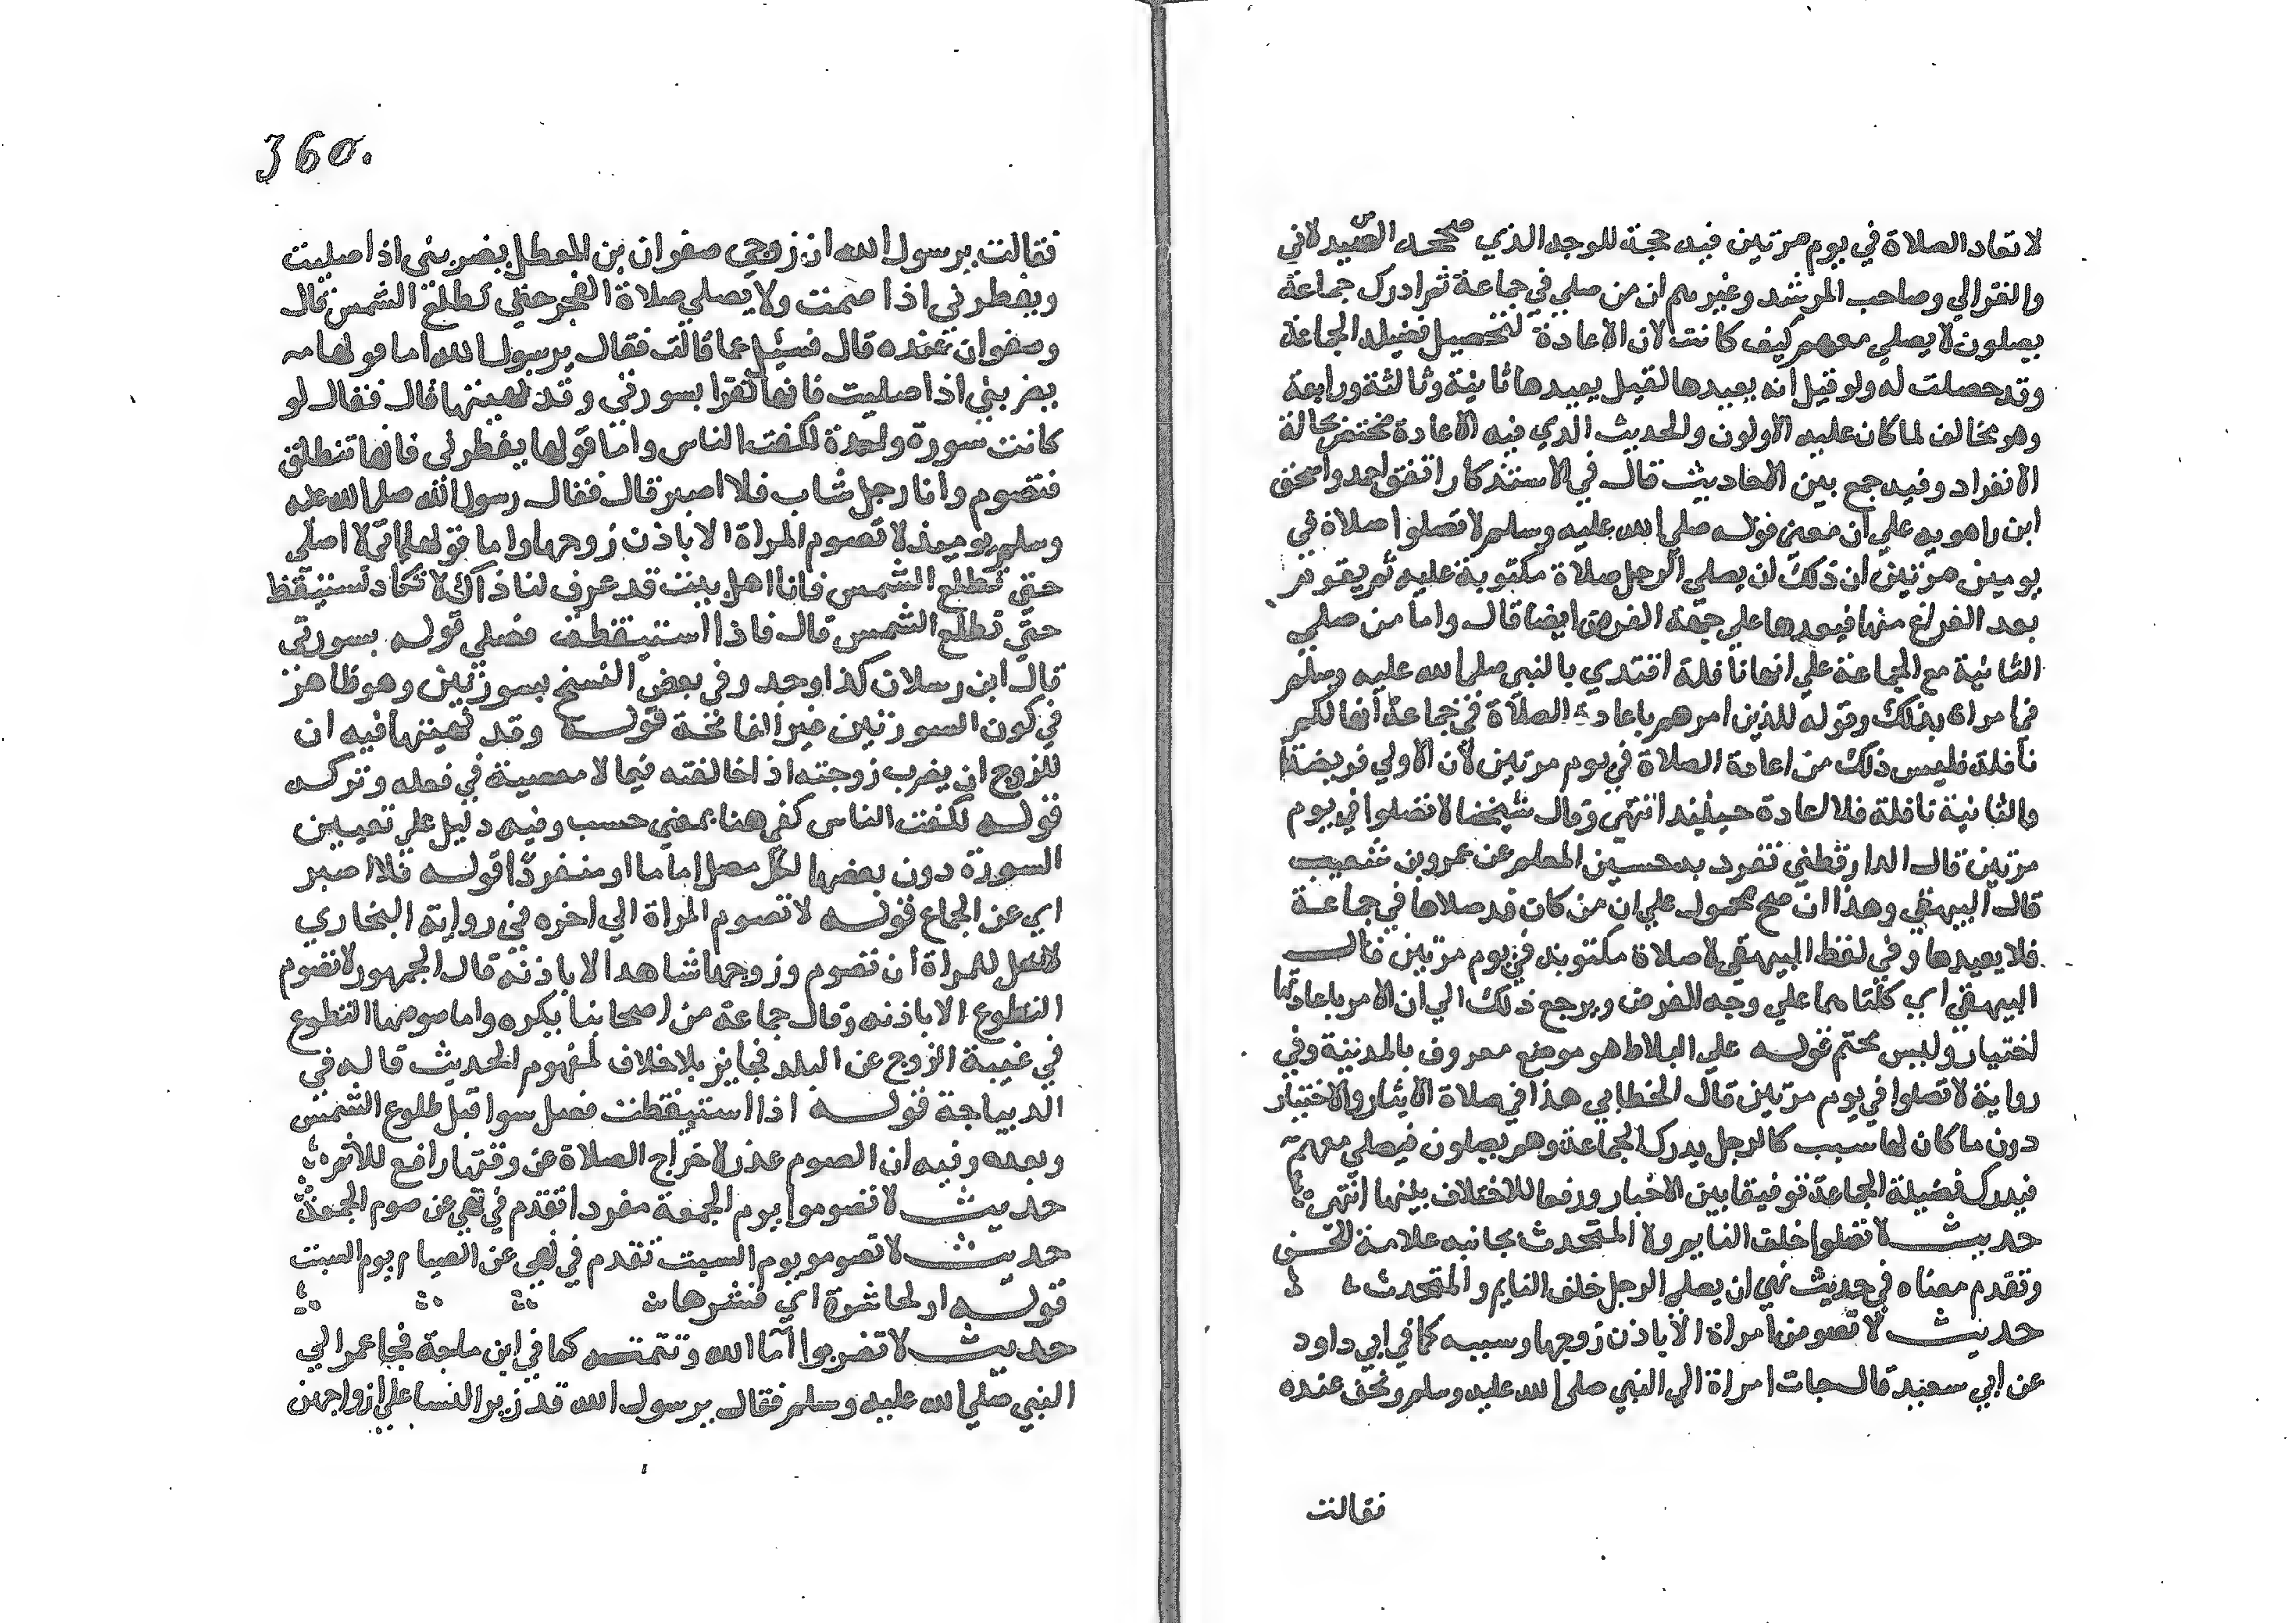 لا تعاد الصلاة في يوم مرتين فيه حجة للوجه الذي صححه الصيدلاني
والغزالي وصاحب المرشد وغيرهم ان من صلي في جماعة ثم ادرك جماعة
يصلون لا يصلي معهم كيف كانت لان الاعادة لتحصيل فضيلة الجماعة
وقد حصلت له ولو قيل انه يعيدها لقيل يعيدها ثانية وثالثة ورابعة
وهو مخالف لما كان عليه الاولون والحديث الذي فيه الاعادة مختص بحالة
الانفراد وفيه جمع بين الاحاديث قال في الاستذكار اتفق احمد واسحق
ابن راهويه علي ان معنى قوله صلي الله عليه وسلم لا تصلوا صلاة في
يومين مرتين ان ذلك ان يصلي الرجل صلاة مكتوبة عليه ثم يقوم
بعد الفراغ منها فيعيدها علي جهة الفرض ايضا قال واما من صلي
الثانية مع الجماعة علي انها نافلة اقتدي بالنبي صلي الله عليه وسلم
في امره بذلك وقوله للذين امرهم باعادة الصلاة في جماعة انها لكم
نافلة فليس ذلك من اعادة الصلاة في يوم مرتين لان الاولي فريضة
والثانية نافلة فلا اعادة حينئذ انتهى وقال شيخنا لا تصلوا في يوم
مرتين قال الدارقطني تفرد به حسين المعلم عن عمرو بن شعيب
قال البيهقي وهذا ان صح محمول علي ان من كان قد صلاها في جماعة
فلا يعيدها وفي لفظ البيهقي لا صلاة مكتوبة في يوم مرتين قال
البيهقي اي كلتاهما علي وجه الفرض ويرجع ذلك الي ان الامر باعادتها
اختيار وليس بحتم قوله علي البلاط هو موضع معروف بالمدينة وفي
رواية لا تصلوا في يوم مرتين قال الخطابي هذا في صلاة الايثار والاختيار
دون ما كان لها سبب كالرجل يدرك الجماعة وهم يصلون فيصلي معهم
فيدرك فضيلة الجماعة توفيقا بين الاخبار ورفعا للاختلاف بينها انتهى
حديث لا تصلوا خلف النايم ولا المتحدث بجانبه علامة الحسن
وتقدم معناه في حديث نهي ان يصلي الرجل خلف النايم والمتحدث
حديث لا تصومن امراة الا باذن زوجها وسببه كما في ابي داود
عن ابي سعيد قال جات امراة الي النبي صلي الله عليه وسلم ونحن عنده
فقالت
360.
فقالت يرسول الله ان زوجي صفوان بن المعطل يضربني اذا صليت
ويفطرني اذا صمت ولا يصلي صلاة الفجر حتى تطلع الشمس قال
وصفوان عنده قال فسئيل عما قالت فقال يرسول الله اما قولها
يضربني اذا صليت فانها تقرا بسورتي وقد نهيتها قال فقال لو
كانت سورة واحدة لكفت الناس واما قولها يفطرني فانها تنطلق
فتصوم وانا رجل شاب فلا اصبر قال فقال رسول الله صلي الله عليه
وسلم يوميذ لا تصوم المراة الا باذن زوجها واما قولها اني لا اصلي
حتى تطلع الشمس فانا اهل بيت قد عرف لنا ذاك لا نكاد نستيقظ
حتى تطلع الشمس قال فاذا استيقظت فصلي قوله بسورتي
قال ابن رسلان كذا وجد وفي بعض النسخ بسورتين وهو ظاهر
في كون السورتين غير الفاتحة قوله وقد نهيتها فيه ان
للزوج ان يضرب زوجته اذا خالفته فيما لا معصية في فعله وتركه
قوله لكفت الناس كفي هنا بمعني حسب وفيه دليل علي تعيين
السورة دون بعضها لكل مصل اماما او منفردا قوله فلا اصبر
اي عن الجماع قوله لا تصوم المراة الي اخره في رواية البخاري
لا تحل للمراة ان تصوم وزوجها شاهد الا باذنه قال الجمهور لا تصوم
التطوع الا باذنه وقال جماعة من اصحابنا يكره واما صومها التطوع
في غيبة الزوج عن البلد فجايز بلا خلاف لمفهوم الحديث قاله في
الديباجة قوله اذا استيقظت فصل سوا قبل طلوع الشمس
وبعده وفيه ان الصوم عذر لاخراج الصلاة عن وقتها رافع للاثم
حديث لا تصوموا يوم الجمعة مفردا تقدم في نهي عن صوم الجمعة
حديث لا تصومو يوم السبت تقدم في نهي عن الصيام يوم السبت
قوله او لحا شجرة اي قشرها
حديث لا تضربوا آما الله وتتمته كما في ابن ماجة فجا عمر الي
النبي صلي الله عليه وسلم فقال يرسول الله قد زبر النسا علي ازواجهن